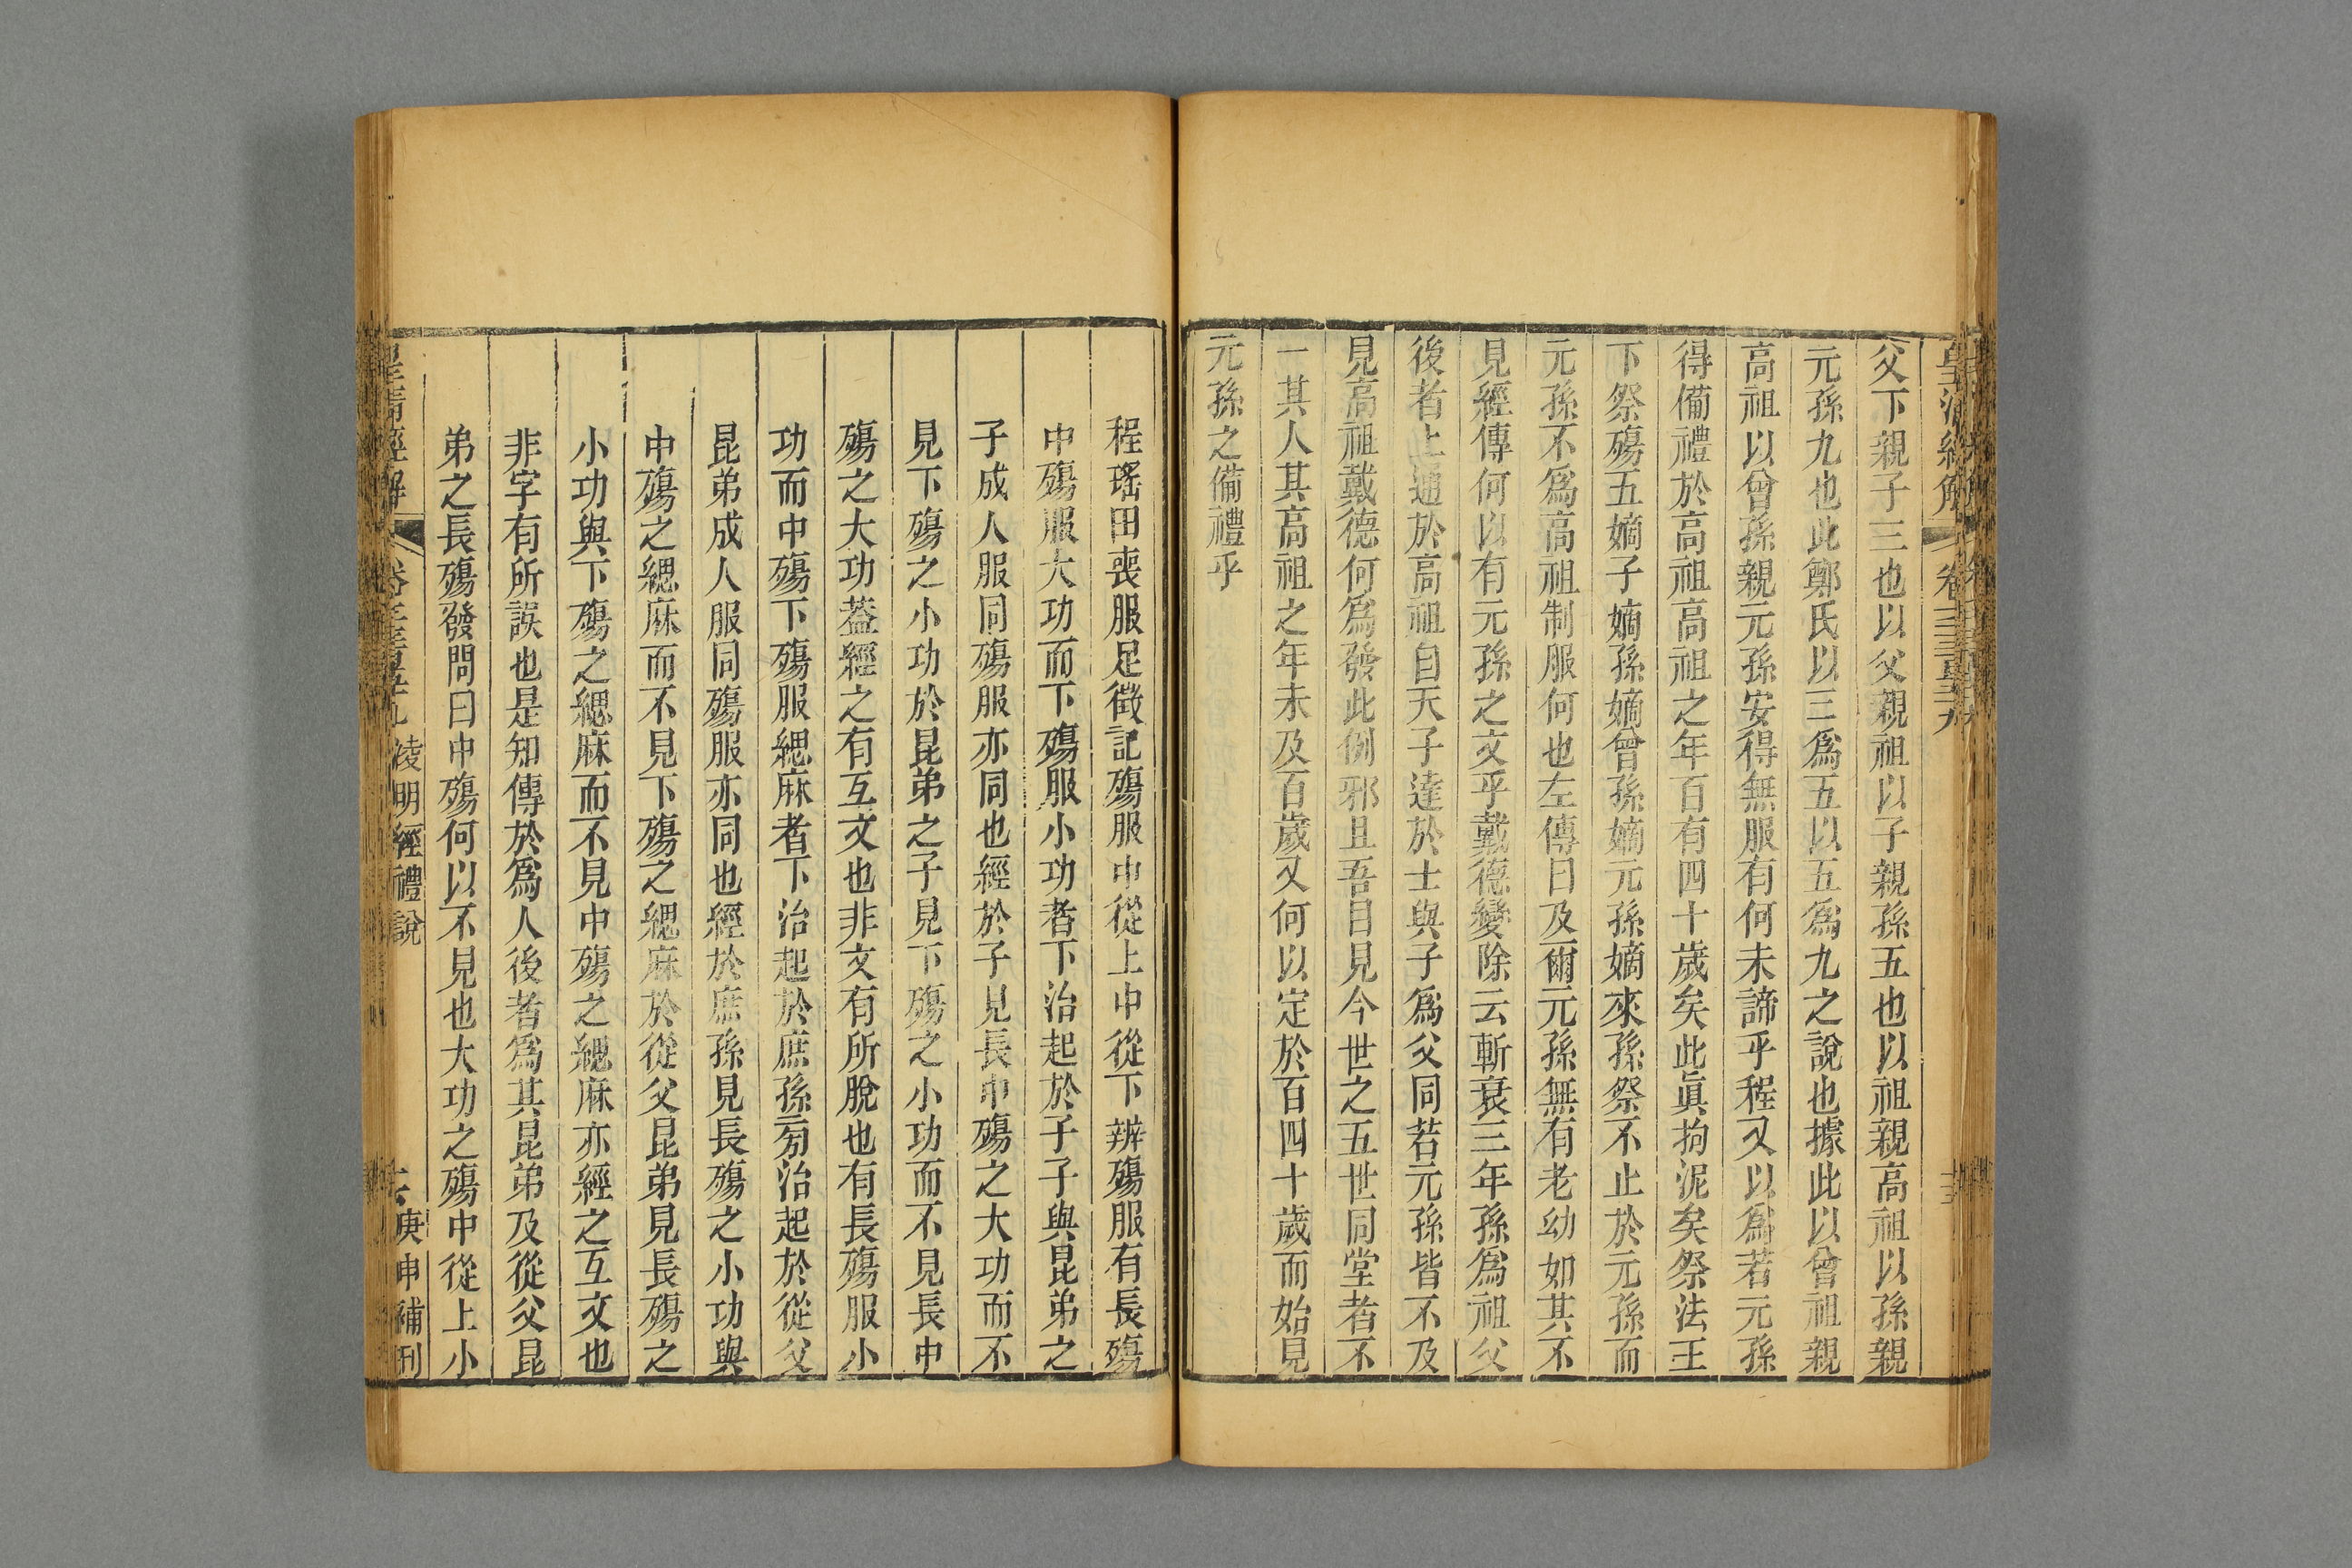 父下親子三也以父親祖以子親孫五也以祖親高祖以孫親
元孫九也此鄭氏以三爲五以五爲九之說也據此以曾祖親
高祖以曾孫親元孫安得無服有何未諦乎程又以爲若元孫
得備禮於高祖高祖之年百有四十歲矣此眞拘泥矣祭法王
下祭殤五嫡子嫡孫嫡曾孫嫡元孫嫡來孫祭不止於元孫而
元孫不爲高祖制服何也左傳曰及爾元孫無有老幼如其不
見經傳何以有元孫之文乎戴德變除云斬衰三年孫爲祖父
後者上通於高祖自天子達於士與子爲父同若元孫皆不及
見高祖戴德何爲發此例邪且吾目見今世之五世同堂者不
一其人其高祖之年未及百歲又何以定於百四十歲而始見
元孫之備禮乎
程瑤田喪服足徵記殤服中從上中從下辨殤服有長殤
中殤服大功而下殤服小功者下治起於子子與昆弟之
子成人服同殤服亦同也經於子見長中殤之大功而不
見下殤之小功於昆弟之子見下殤之小功而不見長中
殤之大功葢經之有互文也非文有所脫也有長殤服小
功而中殤下殤服緦麻者下治起於庶孫㫄治起於從父
昆弟成人服同殤服亦同也經於庶孫見長殤之小功與
中殤之緦麻而不見下殤之緦麻於從父昆弟見長殤之
小功與下殤之緦麻而不見中殤之緦麻亦經之互文也
非字有所誤也是知傳於爲人後者爲其昆弟及從父昆
弟之長殤發問曰中殤何以不見也大功之殤中從上小
皇清經解
凌明經禮說
庚申補刊